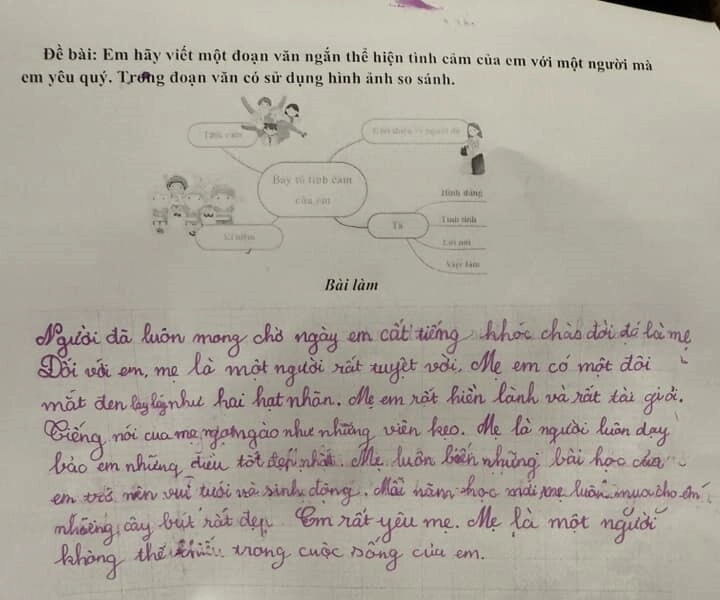 Đề bài: Em hãy viết một đoạn văn ngắn thể hiện tình cảm của em với một người mà
em yêu quý. Trong đoạn văn có sử dụng hình ảnh so sánh.
Tình cảm
Giới thiệu về người đó
Bày tỏ tình cảm
của em
Kỉ niệm
Tả
Hình dáng
Tính tình
Lời nói
Việc làm
Bài làm
Người đã luôn mong chờ ngày em cất tiếng khóc chào đời đó là mẹ
Đối với em, mẹ là một người rất tuyệt vời. Mẹ em có một đôi
mắt đen lay láy như hai hạt nhãn. Mẹ em rất hiền lành và rất tài giỏi.
Tiếng nói của mẹ ngọt ngào như những viên kẹo. Mẹ là người luôn dạy
bảo em những điều tốt đẹp nhất. Mẹ luôn biến những bài học của
em trở nên vui tươi và sinh động. Mỗi năm học mới mẹ luôn mua cho em
những cây bút rất đẹp. Em rất yêu mẹ. Mẹ là một người
không thể thiếu trong cuộc sống của em.